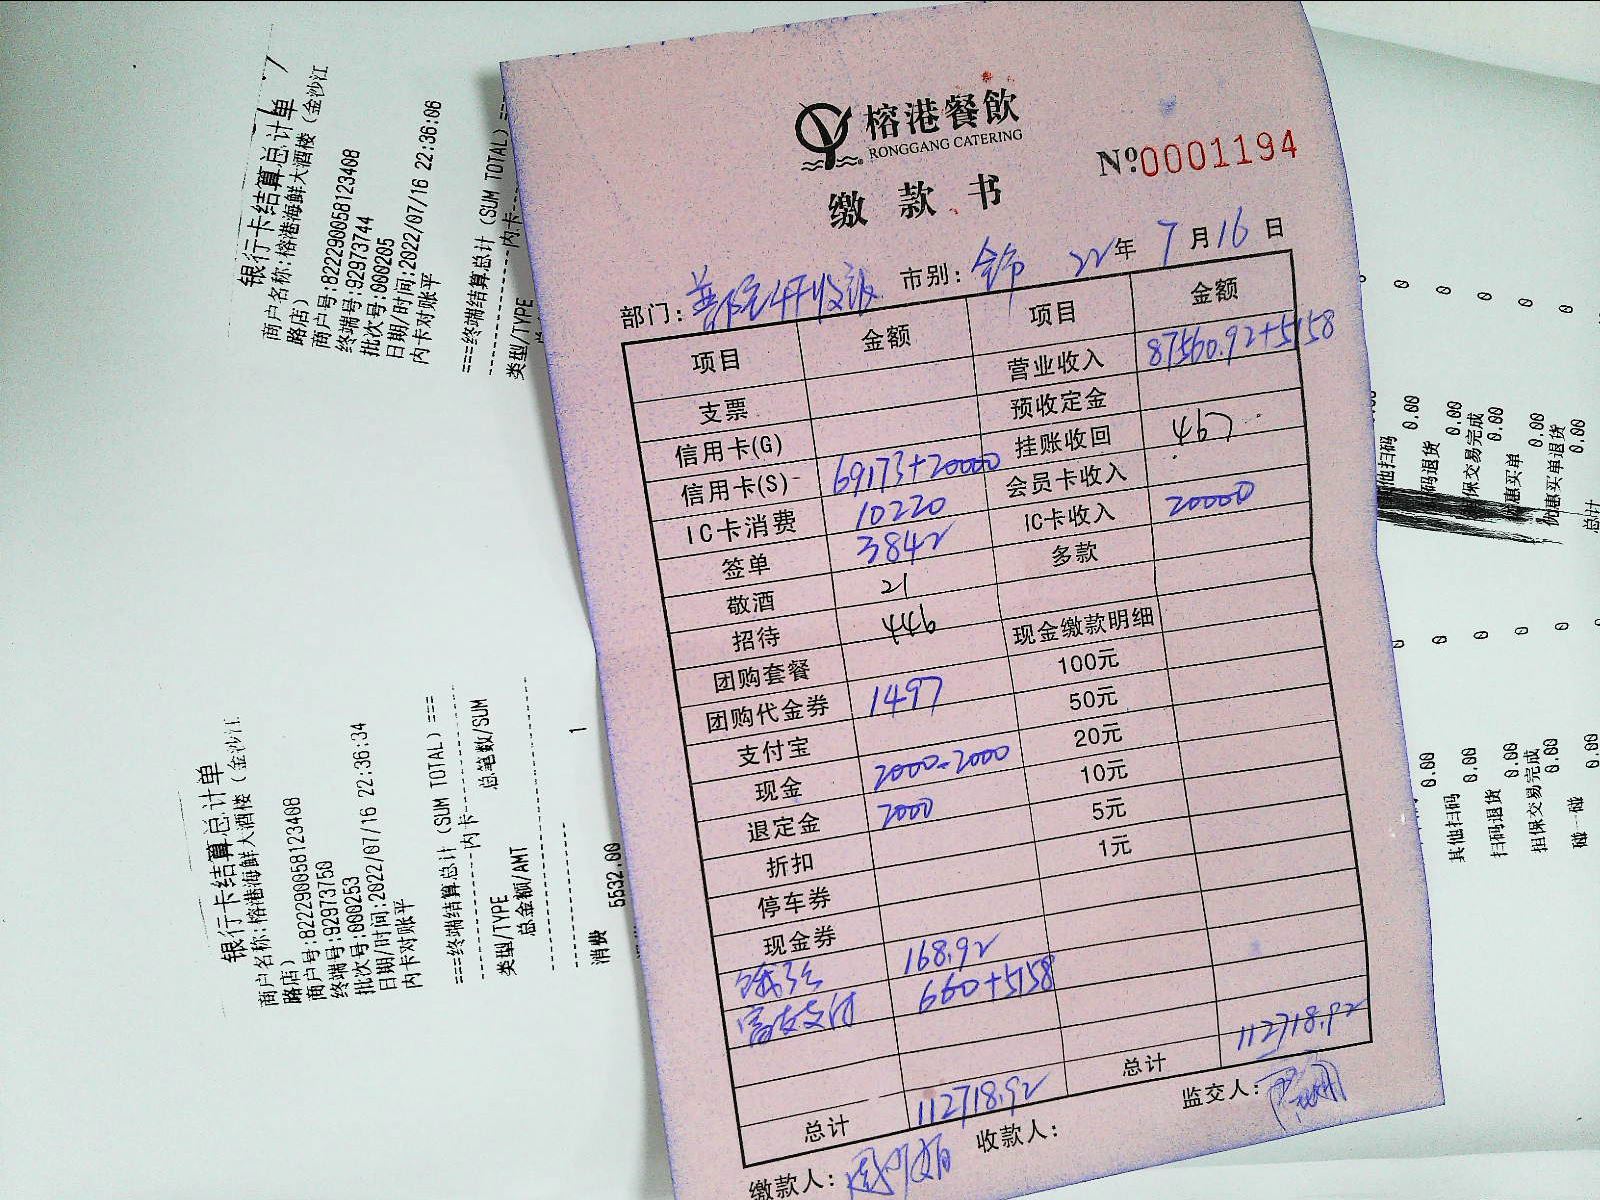 榕港餐飲
RONGGANG CATERING
№0001194
缴款书
部门: 市别: 22年7月16日
项目 金额 项目 金额
支票 营业收入 87560.92+5158
信用卡(G) 预收定金
信用卡(S) 69173+20000 挂账收回 467
IC卡消费 10220 会员卡收入
签单 3842 IC卡收入 20000
敬酒 21 多款
招待 446
团购套餐 现金缴款明细
团购代金券 1497 100元
支付宝 50元
现金 2000-2000 20元
退定金 2000 10元
折扣 5元
停车券 1元
现金券
168.92
支付 660+5158
总计 112718.92 总计 112718.92
缴款人: 收款人: 监交人:
银行卡结算总计单
商户名称:榕港海鲜大酒楼(金沙江
路店)
商户号:822290058123408
终端号:92973744
批次号:000205
日期/时间:2022/07/16 22:36:06
内卡对账平
===终端结算总计(SUM TOTAL)===
内卡
类型/TYPE
银行卡结算总计单
商户名称:榕港海鲜大酒楼(金沙江
路店)
商户号:822290058123408
终端号:92973750
批次号:000253
日期/时间:2022/07/16 22:36:34
内卡对账平
===终端结算总计(SUM TOTAL)===
内卡
类型/TYPE 总笔数/SUM
总金额/AMT
消费 1
5532.00
其他扫码 0
0.00
扫码退货 0
0.00
担保交易完成 0
0.00
优惠买单 0
0.00
优惠买单退货 0
0.00
总计
0.00
其他扫码 0
0.00
扫码退货 0
0.00
担保交易完成 0
0.00
碰一碰 0
0.00